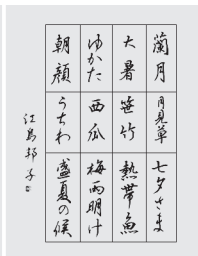 蘭月 月見草 七夕さま
大暑 笹竹 熱帯魚
ゆかた 西瓜 梅雨明け
朝顔 うちわ 盛夏の候
江島邦子